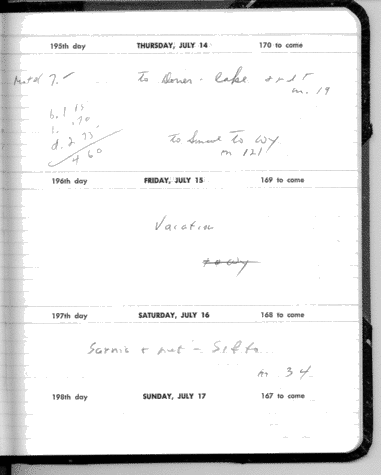 195th day THURSDAY, JULY 14 170 to come
7.-
to Dover - Lake and
m. 19
b. 1 15
1. .70
d. 2 75
4 60
to to wy
m 121
196th day FRIDAY, JULY 15 169 to come
Vacation
to wy
197th day SATURDAY, JULY 16 168 to come
Sarnia + ret -
m 34
198th day SUNDAY, JULY 17 167 to come